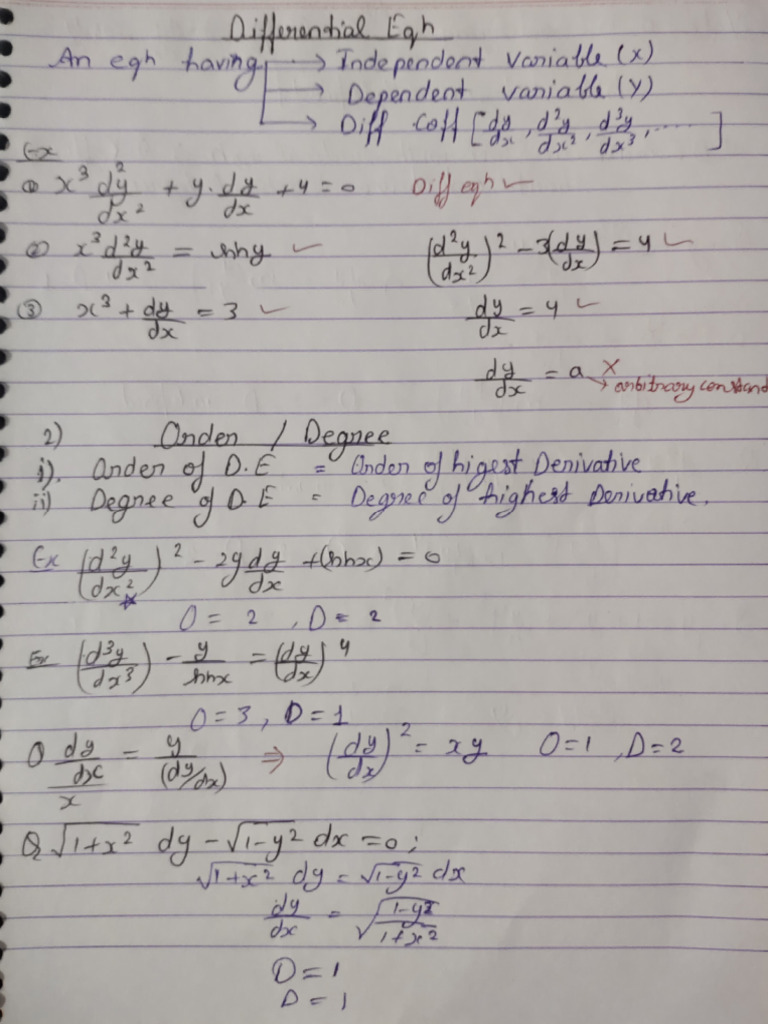 Differential Eqn
An eqn having → Independent variable (x)
→ Dependent variable (y)
→ Diff Coff [dy/dx, d²y/dx², d³y/dx³, ......]
Ex
① x³ d²y/dx² + y. dy/dx + 4 = 0 Diff eqn ✓
② x³ d²y/dx² = siny ✓ (d²y/dx²)² - 3(dy/dx) = 4 ✓
③ x³ + dy/dx = 3 ✓ dy/dx = 4 ✓
dy/dx = a × → arbitrary constand
2) Order / Degree
i). Order of D.E = Order of higest Derivative
ii) Degree of D E = Degree of highest Derivative.
Ex (d²y/dx²)² - 2y dy/dx + (sinx) = 0
O = 2 , D = 2
Ex (d³y/dx³) - y/sinx = (dy/dx)⁴
O = 3 , D = 1
Q (dy/dx)/x = y/(dy/dx) ⇒ (dy/dx)² = xy O=1 , D=2
Q √1+x² dy - √1-y² dx = 0 ;
√1+x² dy = √1-y² dx
dy/dx = √(1-y²/1+x²)
O = 1
D = 1